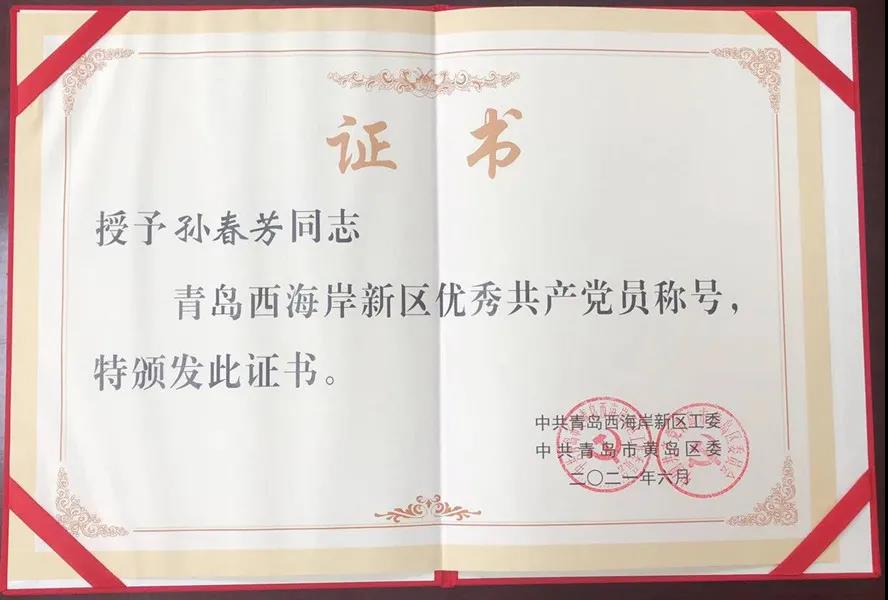 证 书
授予孙春芳同志
青岛西海岸新区优秀共产党员称号，
特颁发此证书。
中共青岛西海岸新区工委
中共青岛市黄岛区委
二〇二一年六月